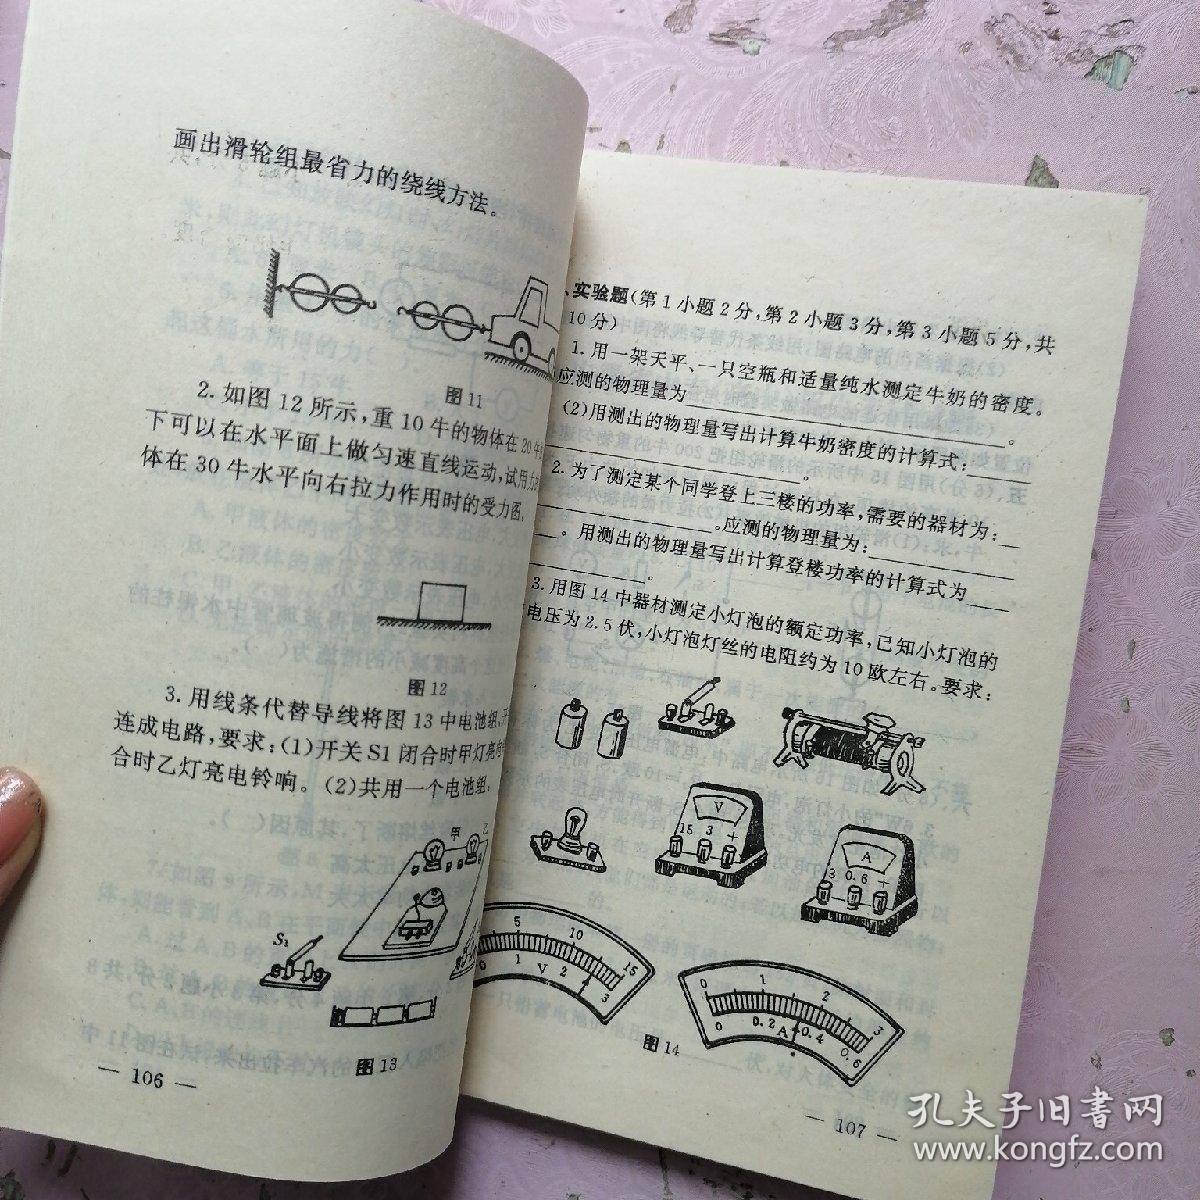 画出滑轮组最省力的绕线方法。
图11
2. 如图12所示，重10牛的物体在20牛
下可以在水平面上做匀速直线运动，试用力
体在30牛水平向右拉力作用时的受力图。
图12
3. 用线条代替导线将图13中电池组、开
连成电路，要求：(1)开关S1闭合时甲灯亮
合时乙灯亮电铃响。(2)共用一个电池组。
甲
乙
S₁
图13
— 106 —
、实验题(第1小题2分，第2小题3分，第3小题5分，共
10分)
1. 用一架天平、一只空瓶和适量纯水测定牛奶的密度。
应测的物理量为
。
(2)用测出的物理量写出计算牛奶密度的计算式：
。
2. 为了测定某个同学登上三楼的功率，需要的器材为：
。应测的物理量为：
。用测出的物理量写出计算登楼功率的计算式为
。
3. 用图14中器材测定小灯泡的额定功率，已知小灯泡的
电压为2.5伏，小灯泡灯丝的电阻约为10欧左右。要求：
V
15 3 +
A
3 0.6 +
5 10 15
0 1 V 2 3
0 1 2 3
0 0.2 A 0.4 0.6
图14
— 107 —
孔夫子旧书网
www.kongfz.com